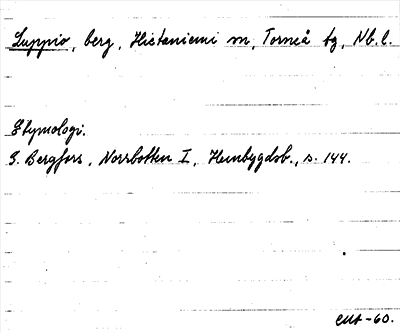 Luppio, berg, Hietaniemi sn, Torneå tg, Nb.l.
Etymologi.
G. Bergfors, Norrbotten I, Hembygdsb., s. 144.
EMA-60.